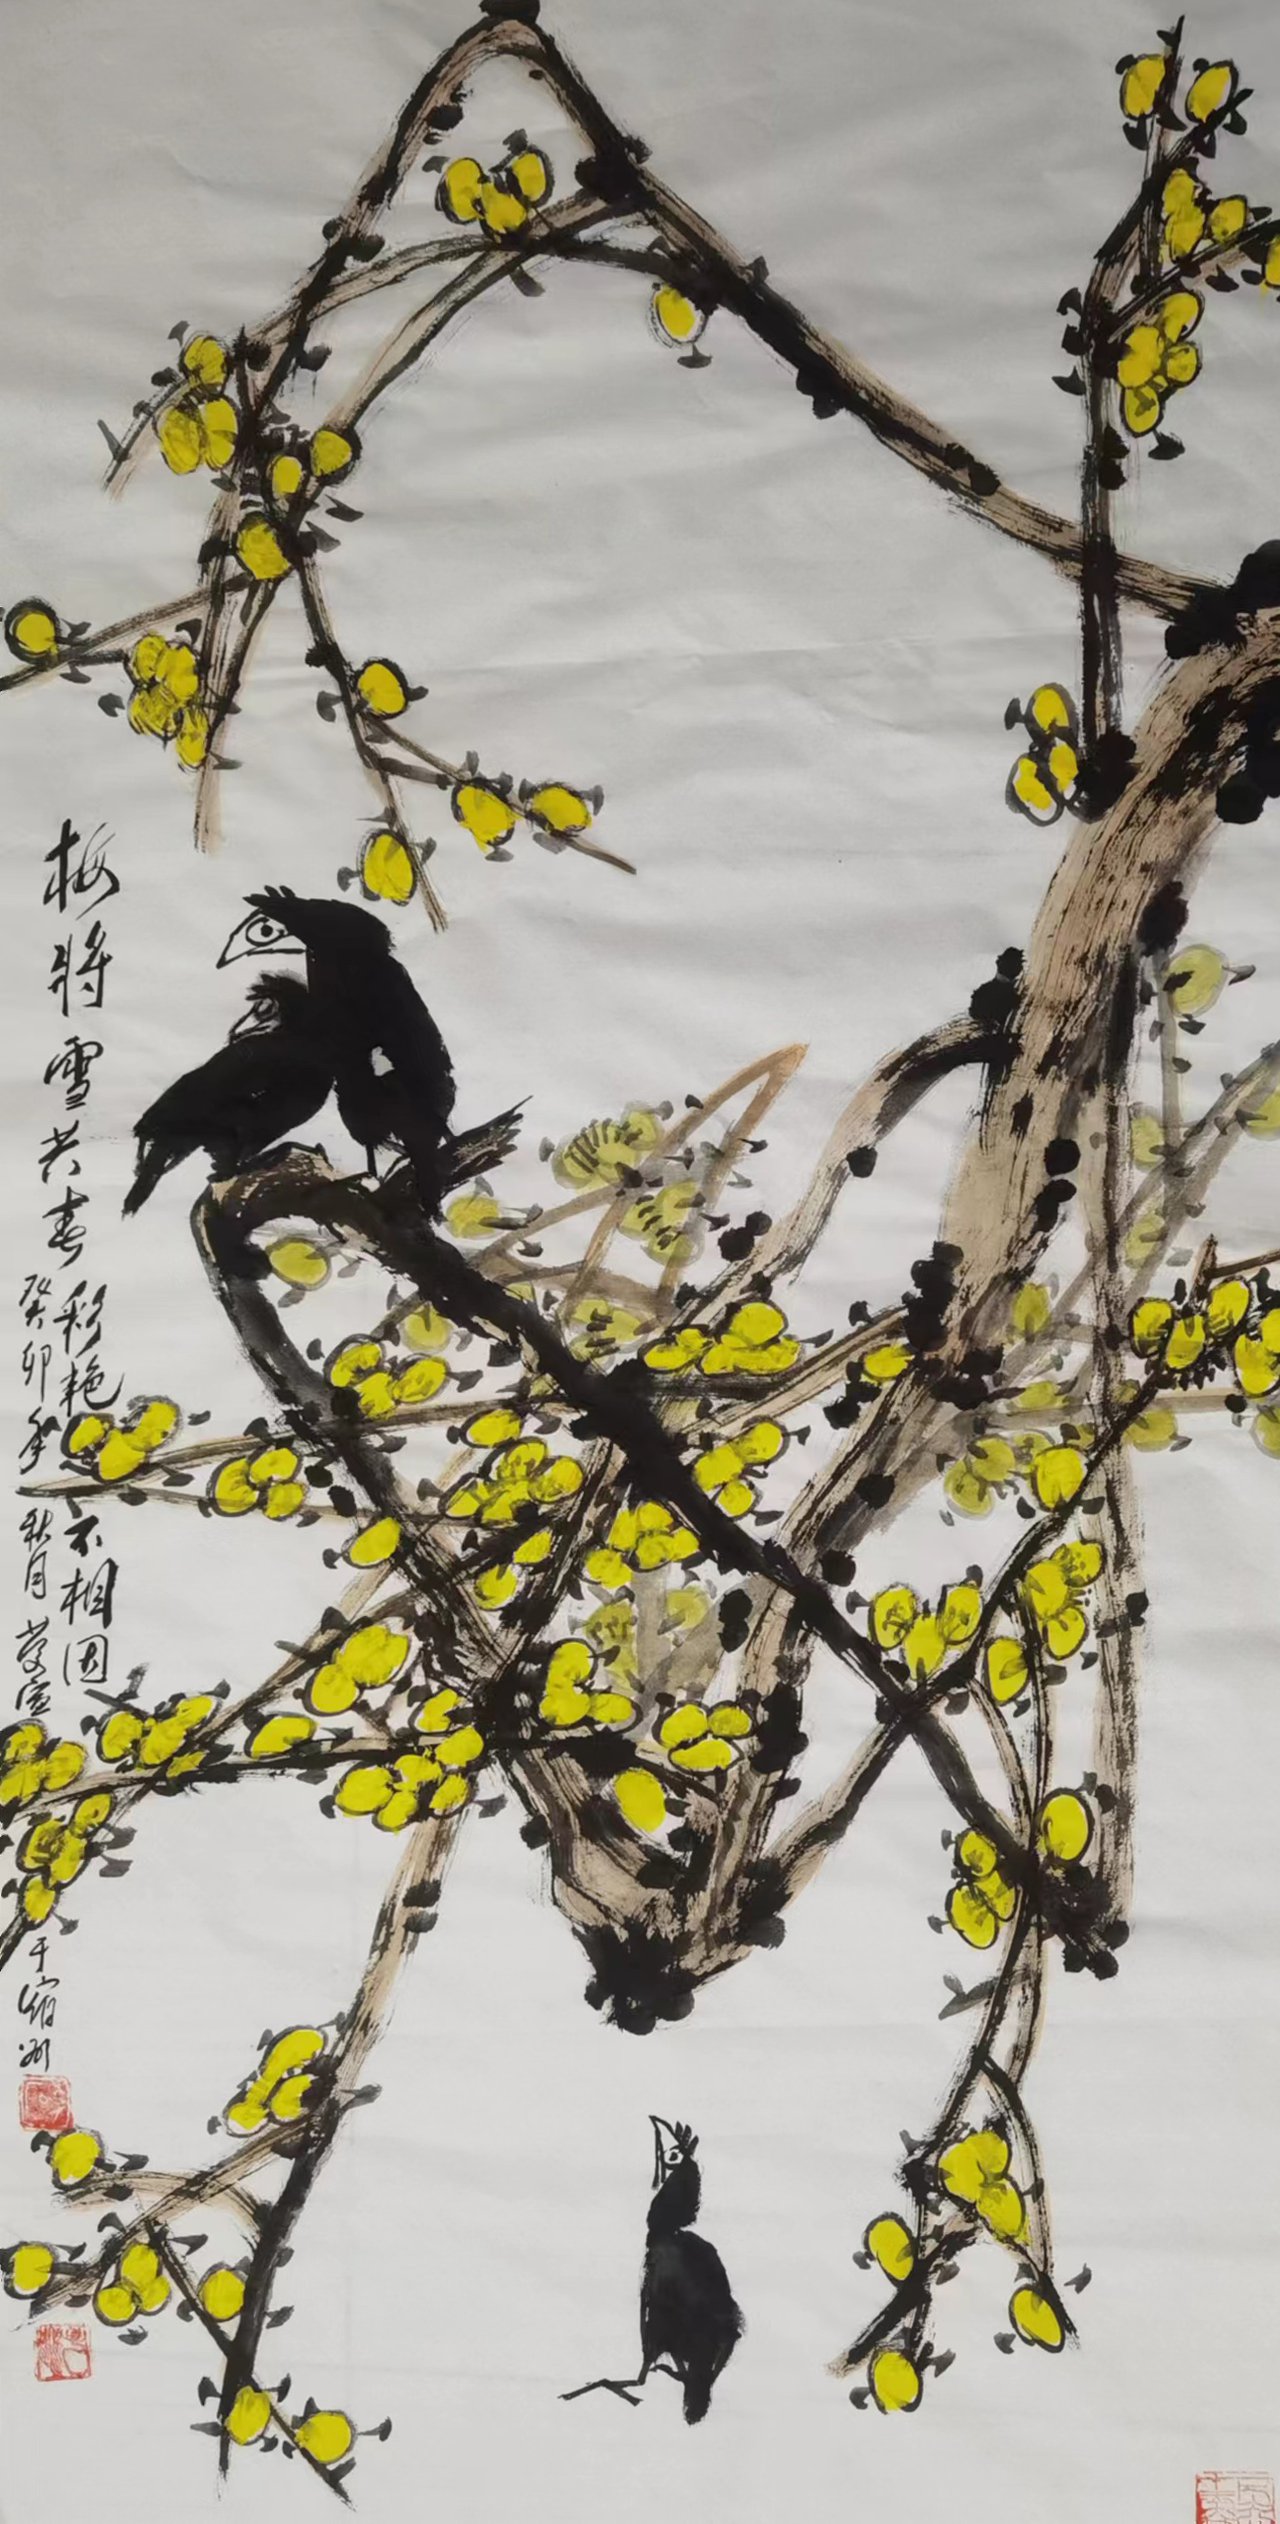 梅将雪共春彩艳不相因
癸卯年秋月
于宿州